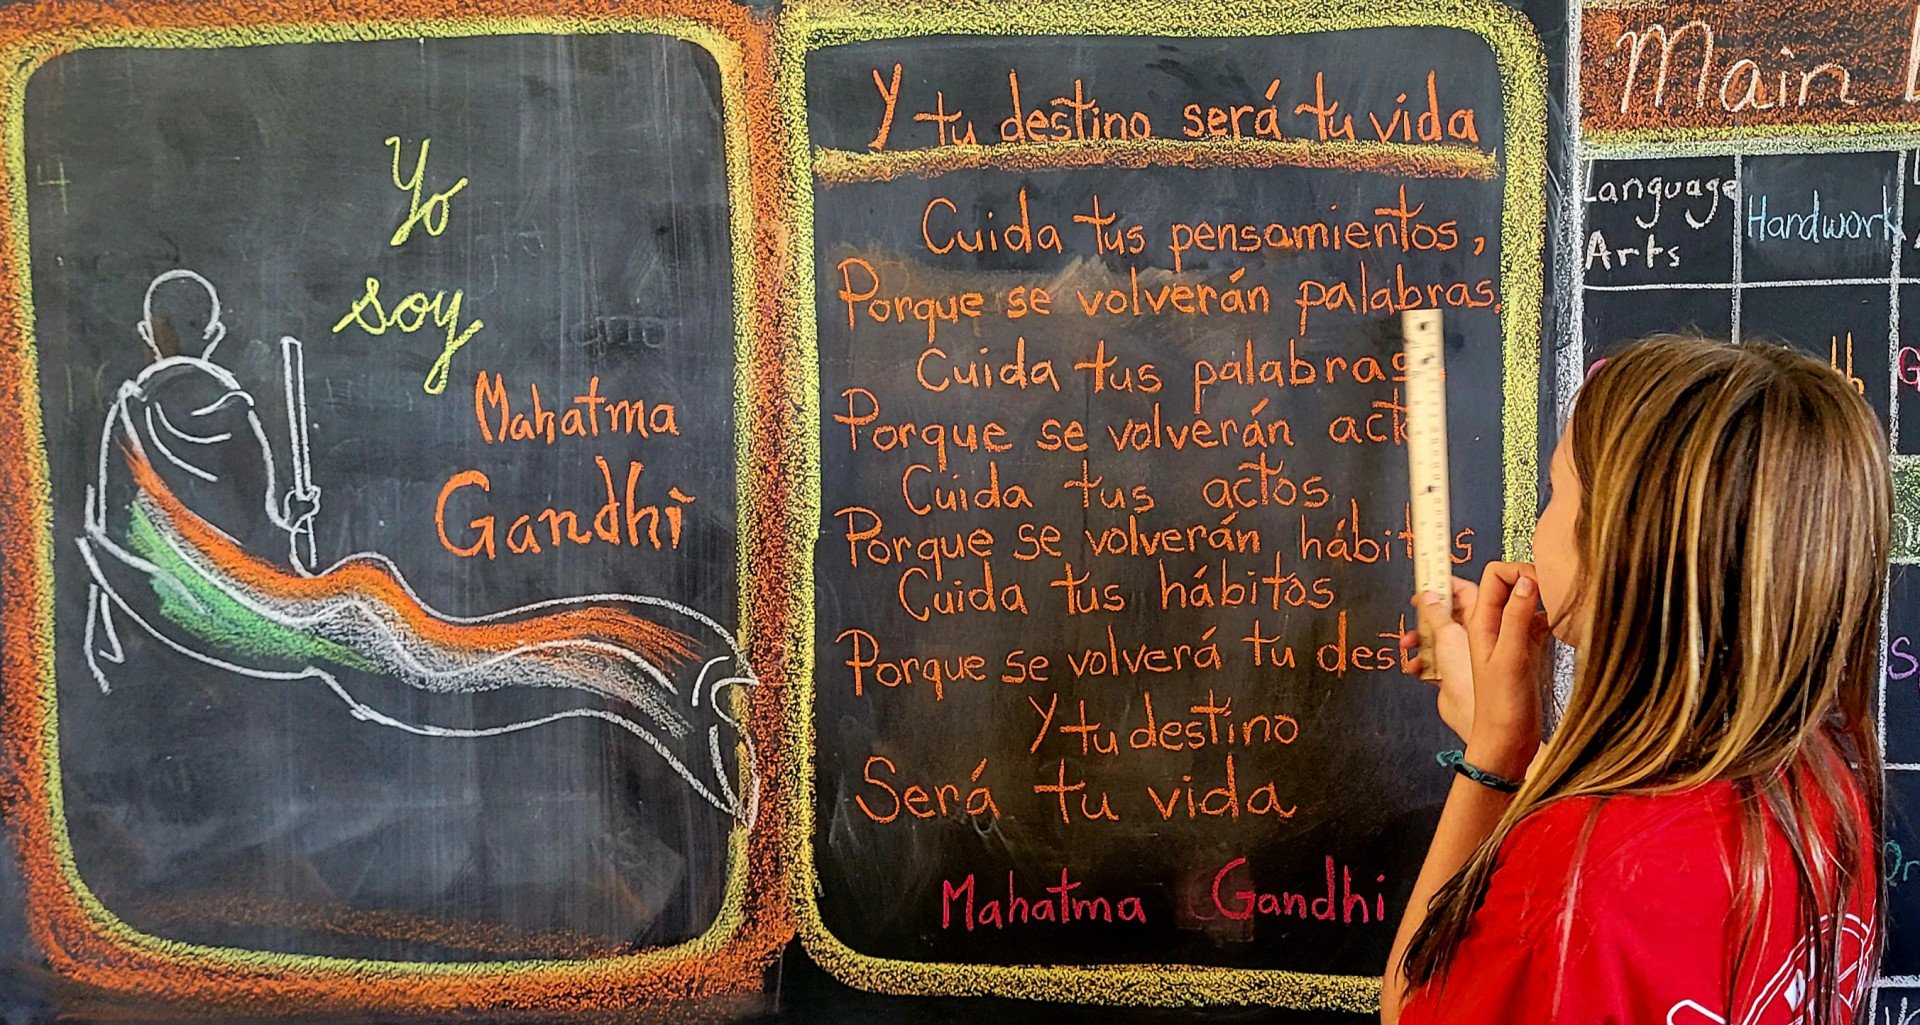 Yo
soy
Mahatma
Gandhi
Y tu destino será tu vida
Cuida tus pensamientos,
Porque se volverán palabras.
Cuida tus palabras
Porque se volverán
Cuida tus actos
Porque se volverán hábitos
Cuida tus hábitos
Porque se volverá tu
Y tu destino
Será tu vida
Mahatma Gandhi
Main
Language
Arts
Handwork